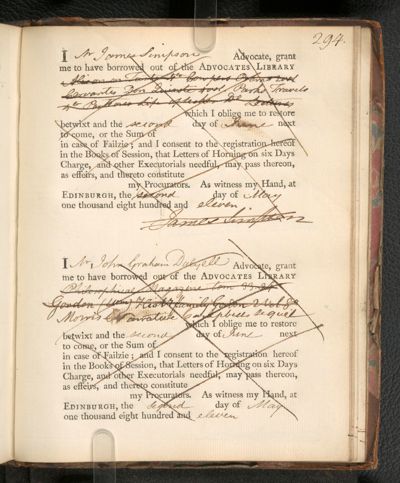 294.
I Mr James Simpson Advocate, grant
me to have borrowed out of the ADVOCATES LIBRARY
Park's Travels
which I oblige me to restore
betwixt and the second day of June next
to come, or the Sum of
in case of Failzie; and I consent to the registration hereof
in the Books of Session, that Letters of Horning on six Days
Charge, and other Executorials needful, may pass thereon,
as effeirs, and thereto constitute
my Procurators. As witness my Hand, at
EDINBURGH, the second day of May
one thousand eight hundred and eleven
James Simpson
I Mr John Graham Dalyell Advocate, grant
me to have borrowed out of the ADVOCATES LIBRARY
Philosophical Magazine tom
Gordon
which I oblige me to restore
betwixt and the second day of June next
to come, or the Sum of
in case of Failzie; and I consent to the registration hereof
in the Books of Session, that Letters of Horning on six Days
Charge, and other Executorials needful, may pass thereon,
as effeirs, and thereto constitute
my Procurators. As witness my Hand, at
EDINBURGH, the second day of May
one thousand eight hundred and eleven